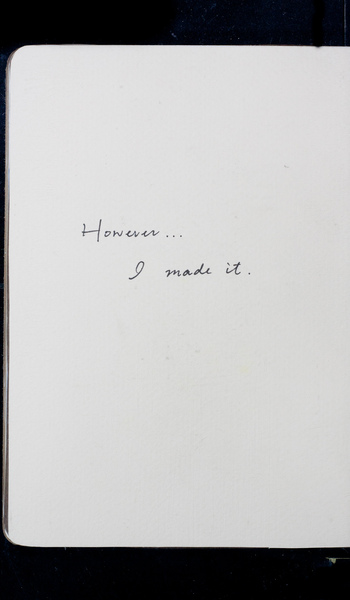 However...
I made it.